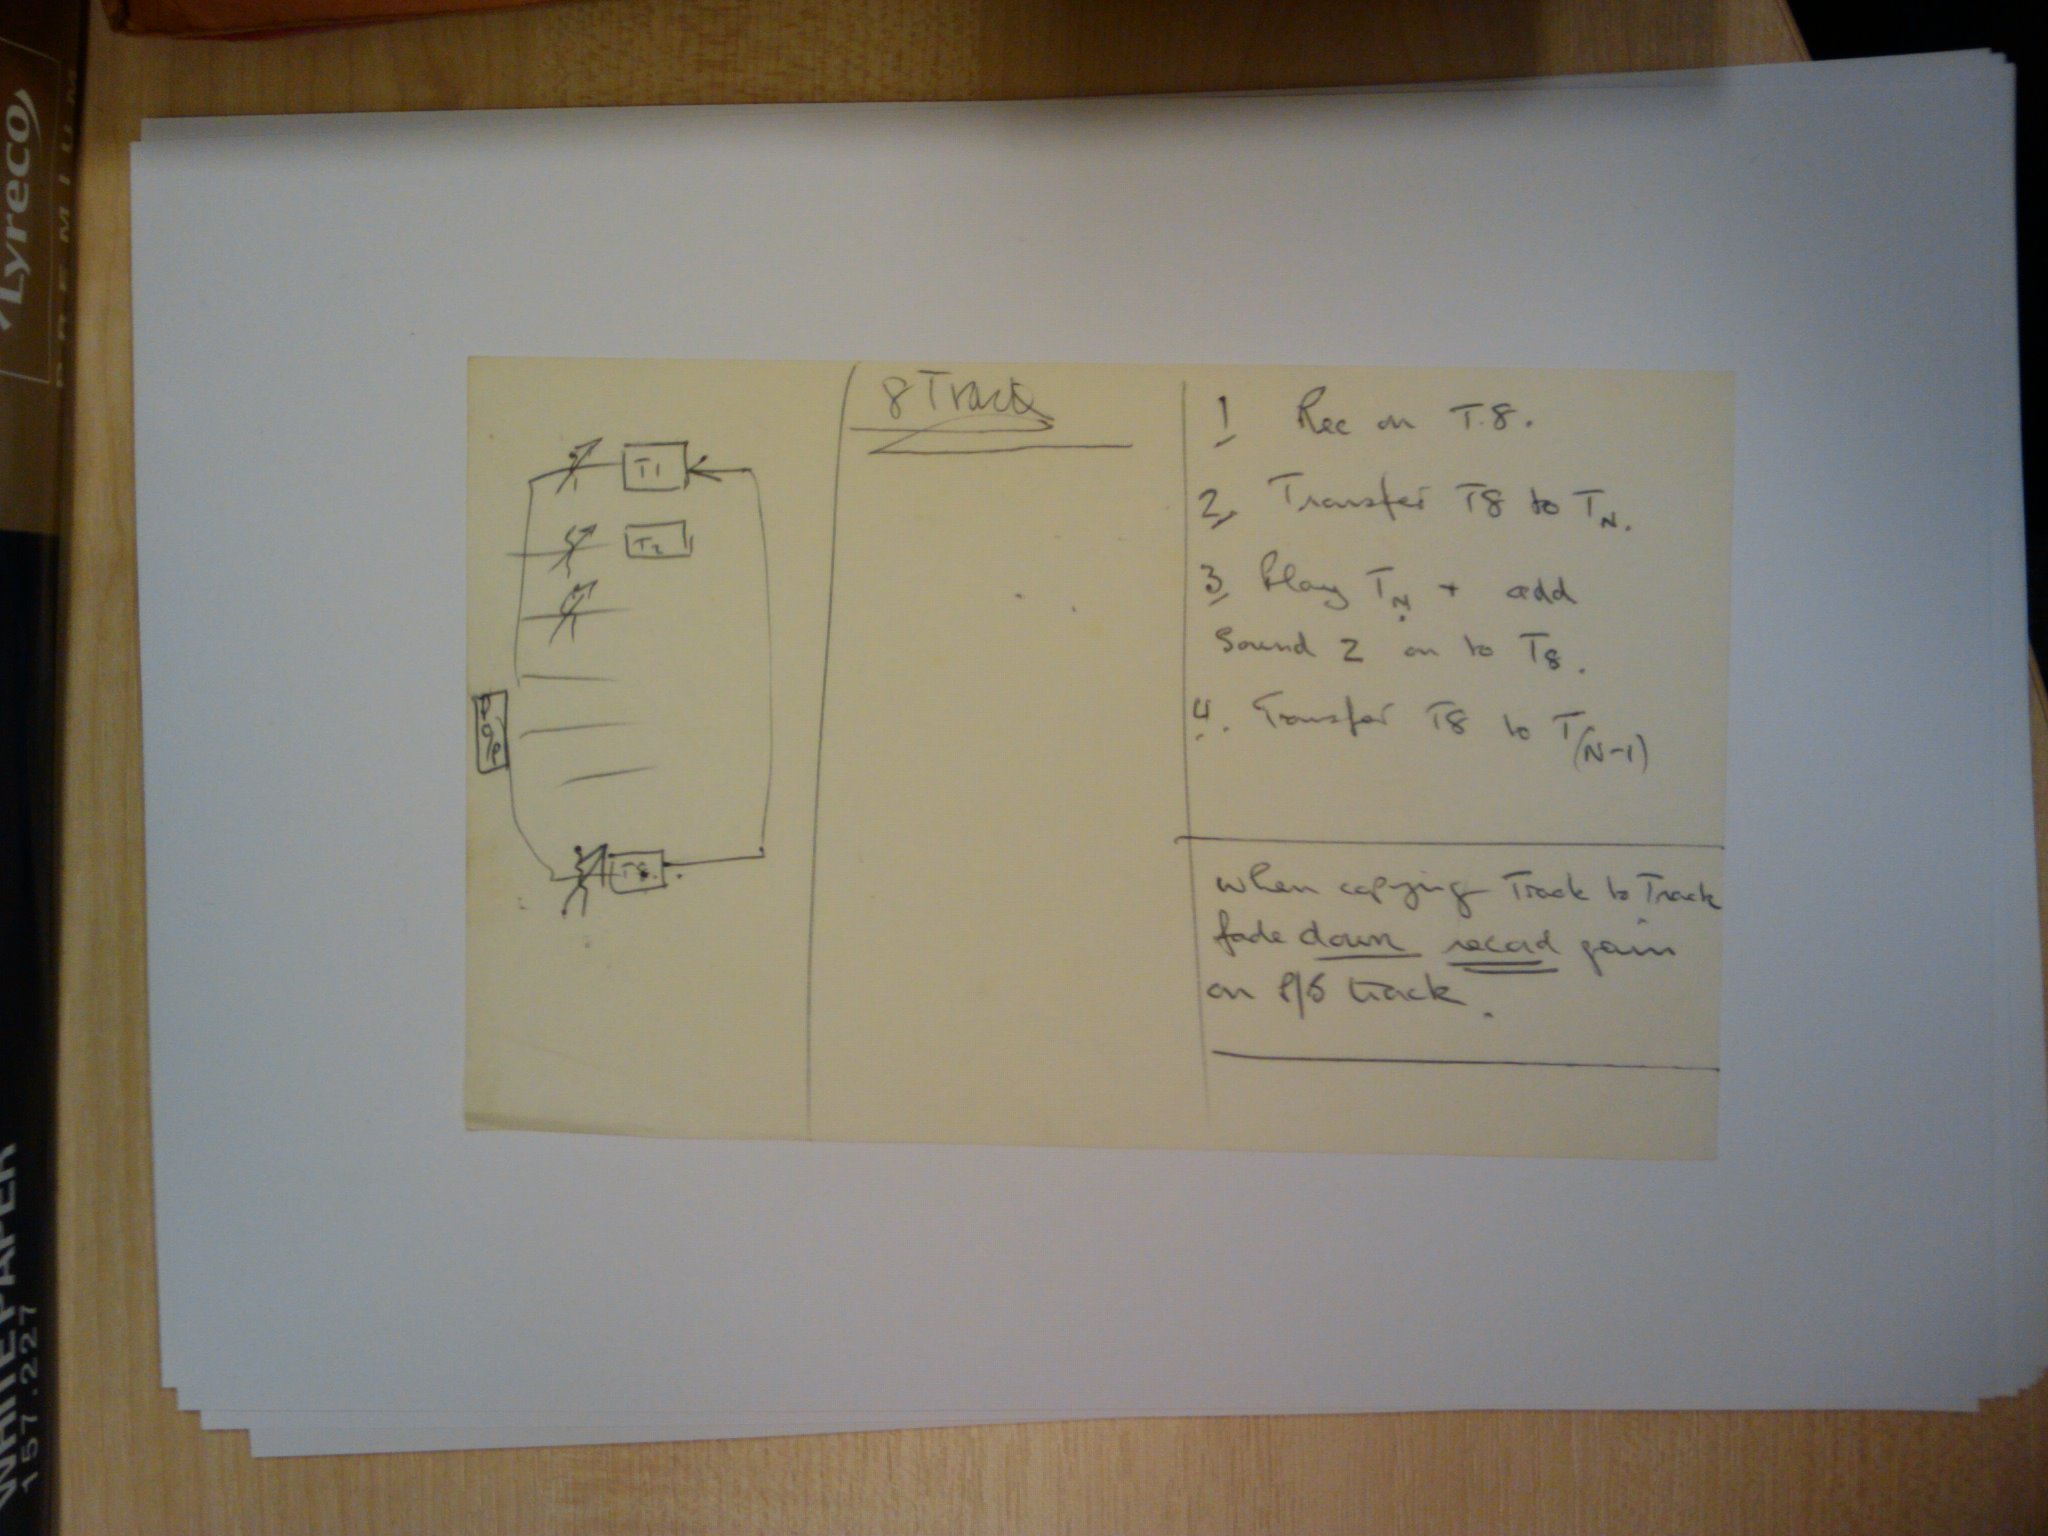 8 Track
T1
T2
T8.
1 Rec on T.8.
2, Transfer T8 to TN.
3, Play TN + add
Sound 2 on to T8.
4. Transfer T8 to T(N-1)
when copying Track to Track
fade down record gain
on P/B track.
Lyreco
PREMIUM
WHITE PAPER
157.227